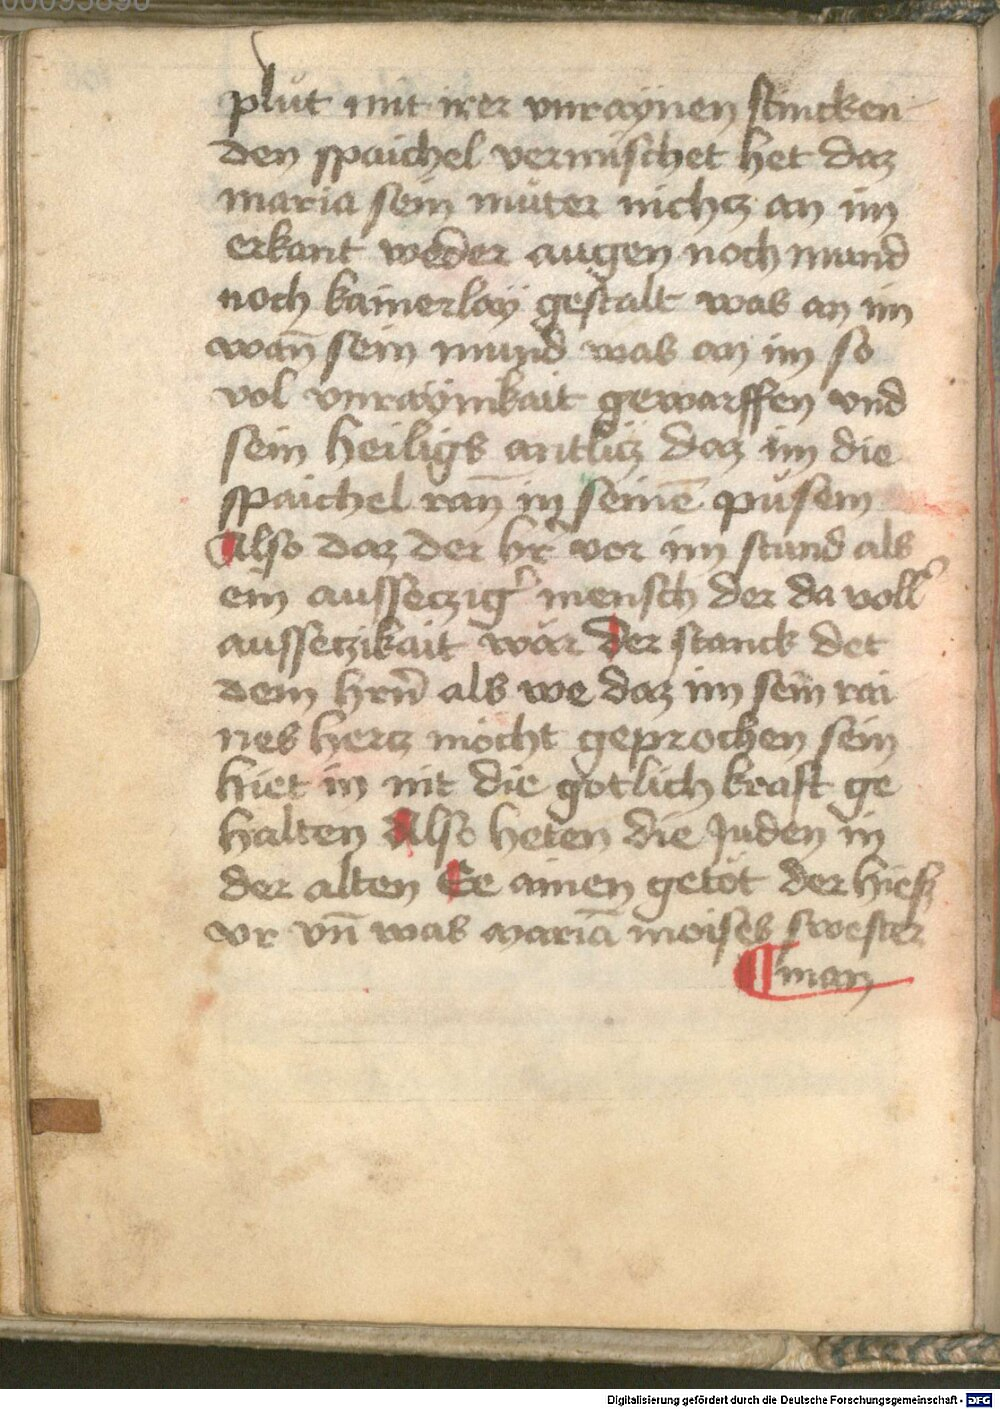 00095890
plut mit irer vnraÿnen stincken
den spaichel vermischet het daz
maria sein muter nichcz an im
erkant weder augen noch mund
noch kainerlaÿ gestalt was an im
wan̄ sein mund was an im so
vol vnraÿnikait gewarffen vnd
sein heiligs antlicz daz im die
spaichel ran̄ in seinē pusem
Also daz der hr̄ vor im stund als
ein aussecziger mensch der da voller
aussetzikait wär der stanck det
dem hrn̄ als we daz im sein rai
nes hercz möcht geprochen sein
hiet in nit die gotlich kraft ge
halten Also heten die Juden in
der alten Ee ainen getöt der hiesz
vr vn̄ was mariā moises swester
¶ man
Digitalisierung gefördert durch die Deutsche Forschungsgemeinschaft - DFG